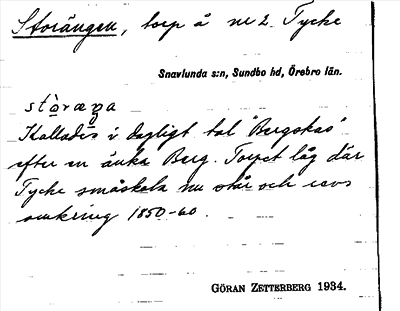 Storängen, torp å nr 2 Tycke
Snavlunda s:n, Sundbo hd, Örebro län.
Kallades i dagligt tal "Bergskas"
efter en änka Berg. Torpet låg där
Tycke småskola nu står och revs
omkring 1850-60.
GÖRAN ZETTERBERG 1934.